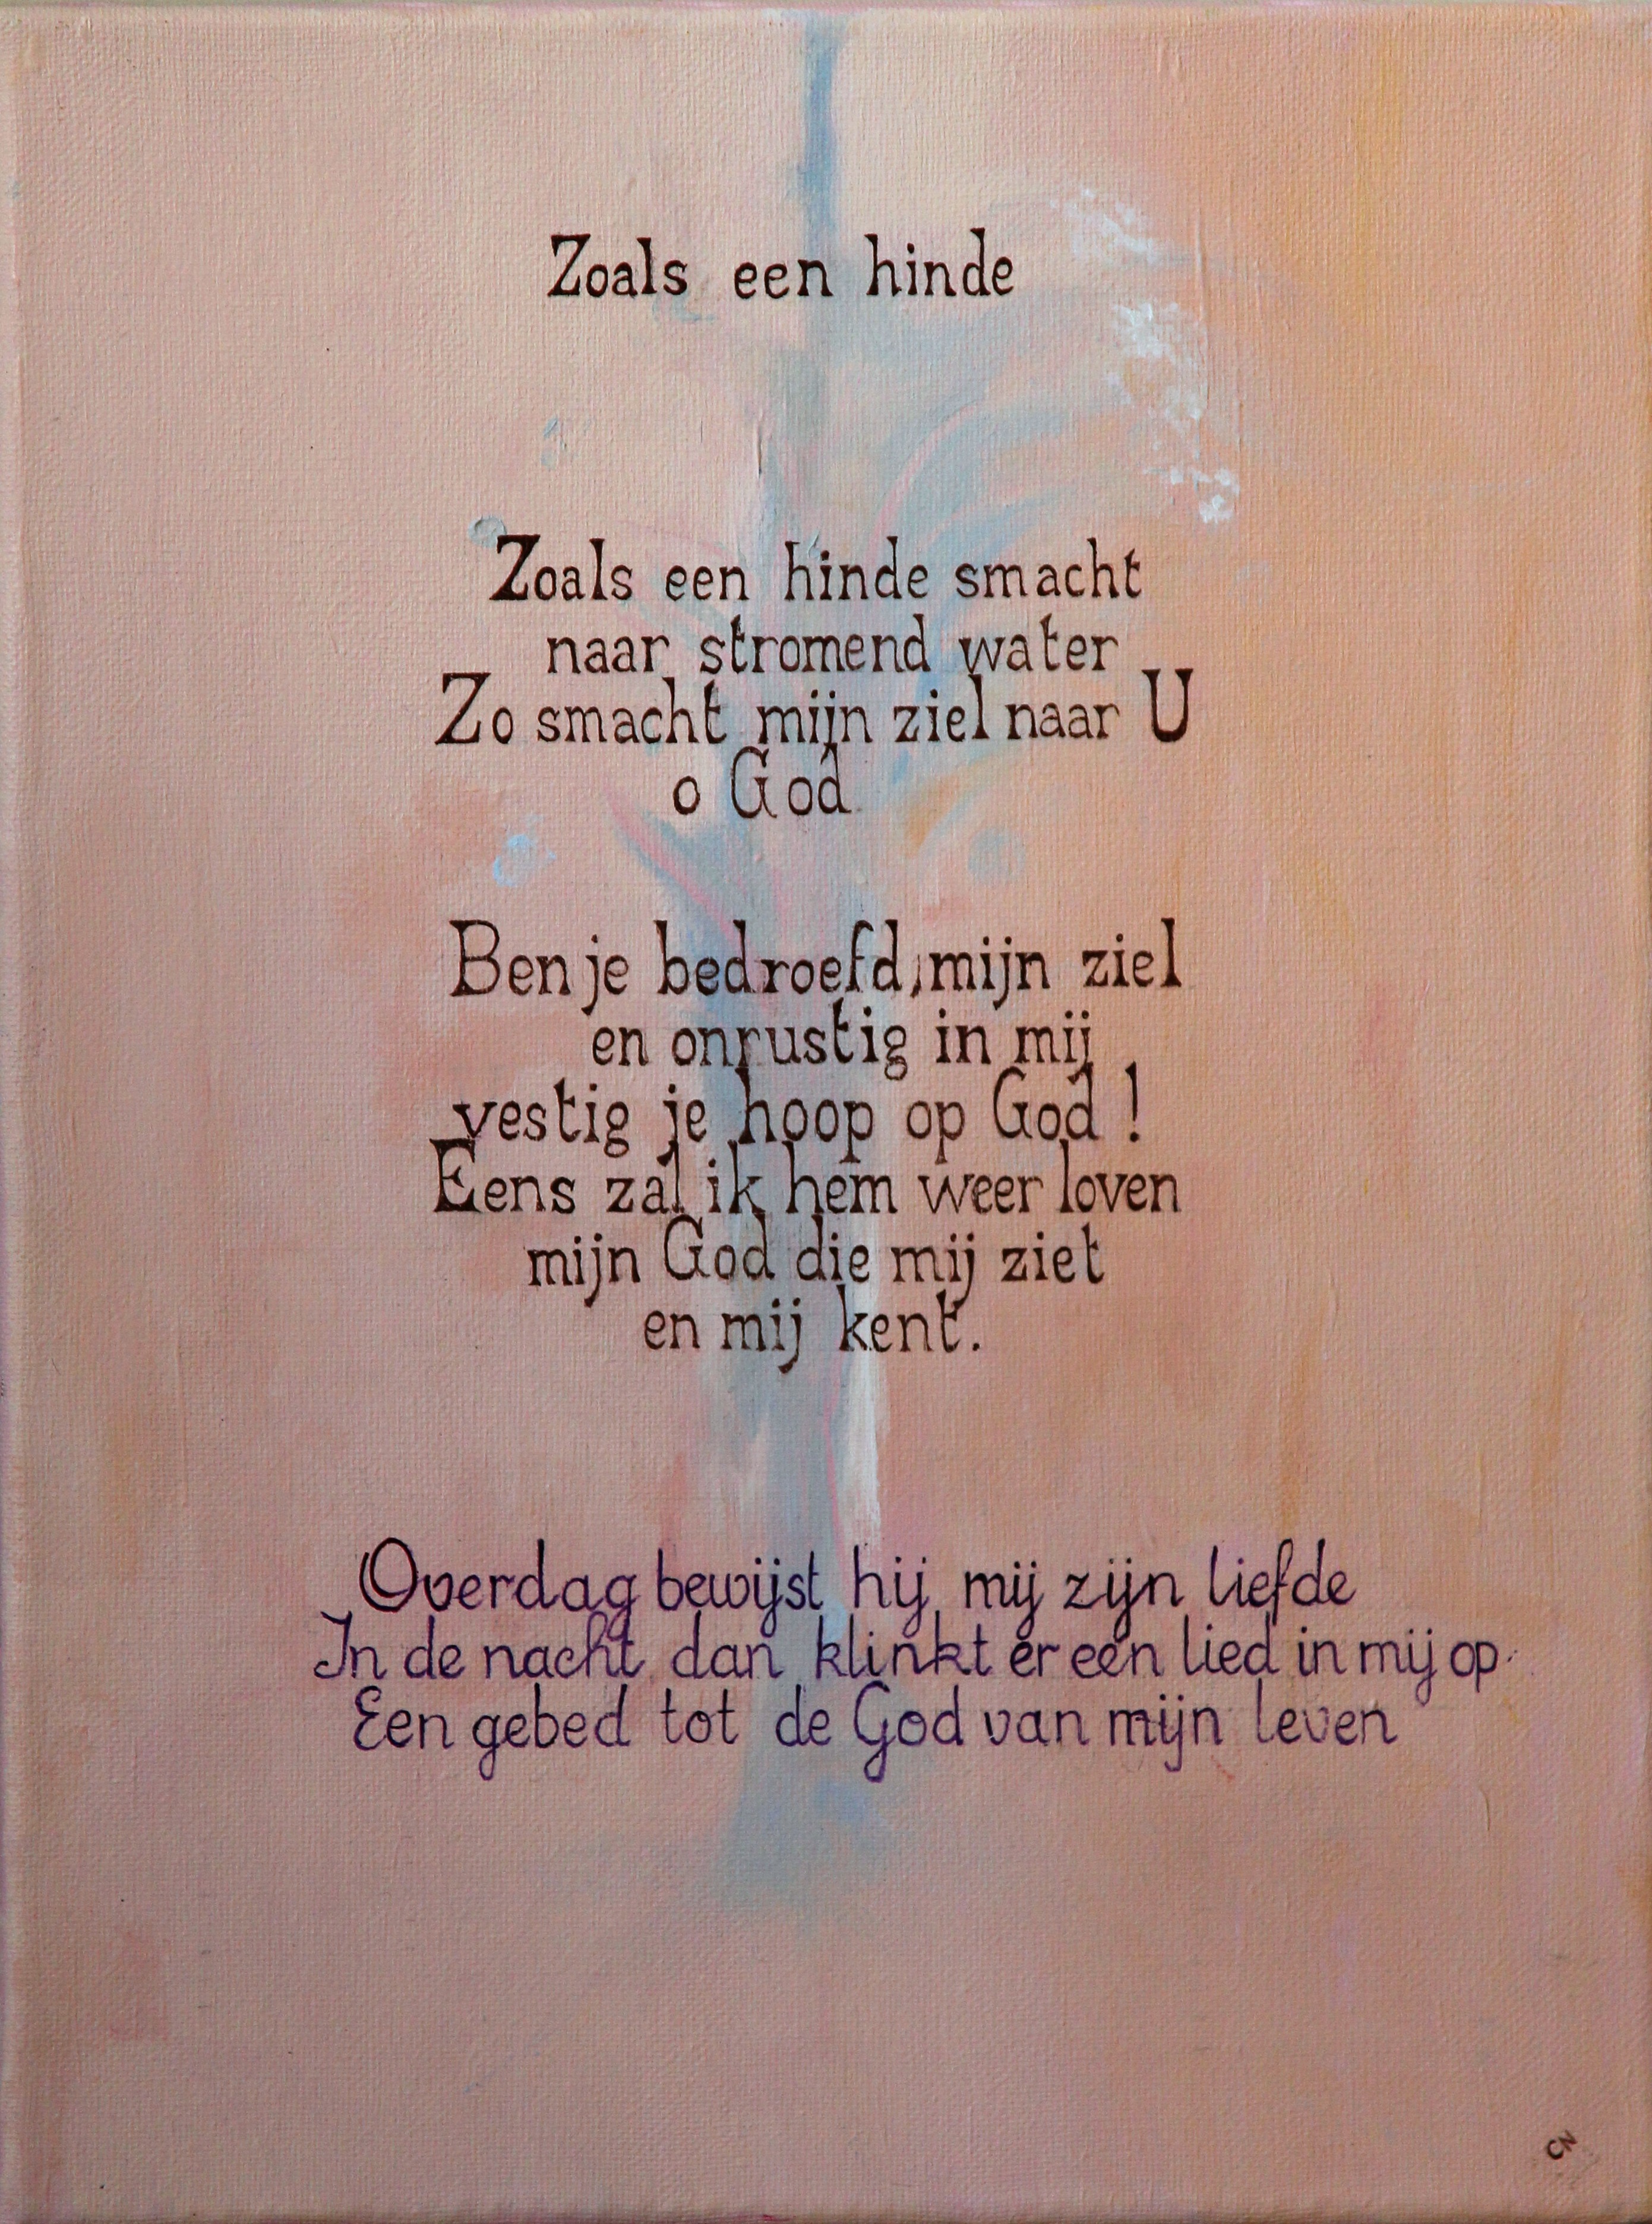 Zoals een hinde
Zoals een hinde smacht
naar stromend water
Zo smacht mijn ziel naar U
o God
Ben je bedroefd, mijn ziel
en onrustig in mij
vestig je hoop op God !
Eens zal ik hem weer loven
mijn God die mij ziet
en mij kent.
Overdag bewijst hij mij zijn liefde
In de nacht dan klinkt er een lied in mij op.
Een gebed tot de God van mijn leven
CN